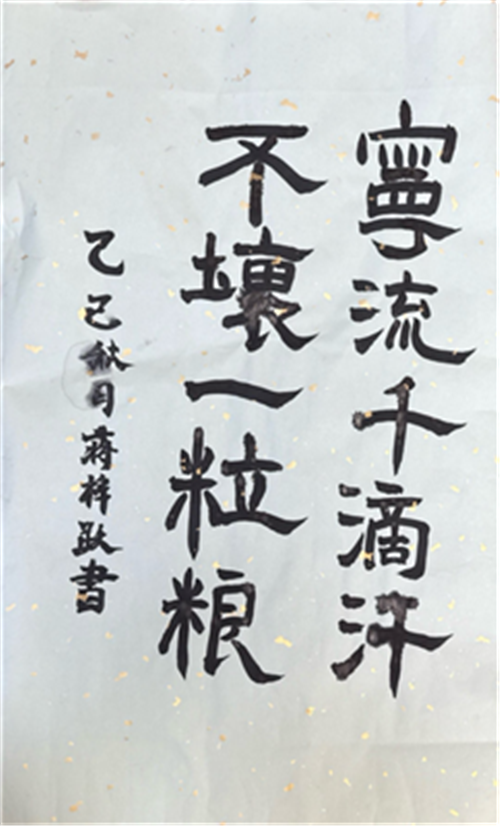 寧流千滴汗
不壞一粒粮
乙己秋月蔣梓跃書